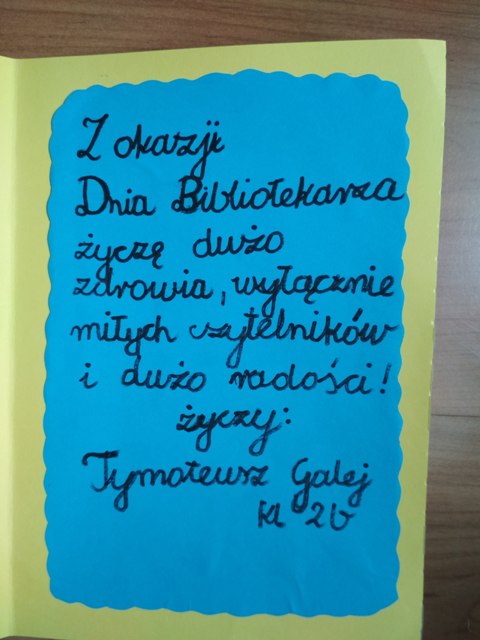 Z okazji
Dnia Bibliotekarza
życzę dużo
zdrowia, wyłącznie
miłych czytelników
i dużo radości!
życzy:
Tymoteusz Galej
kl 2b